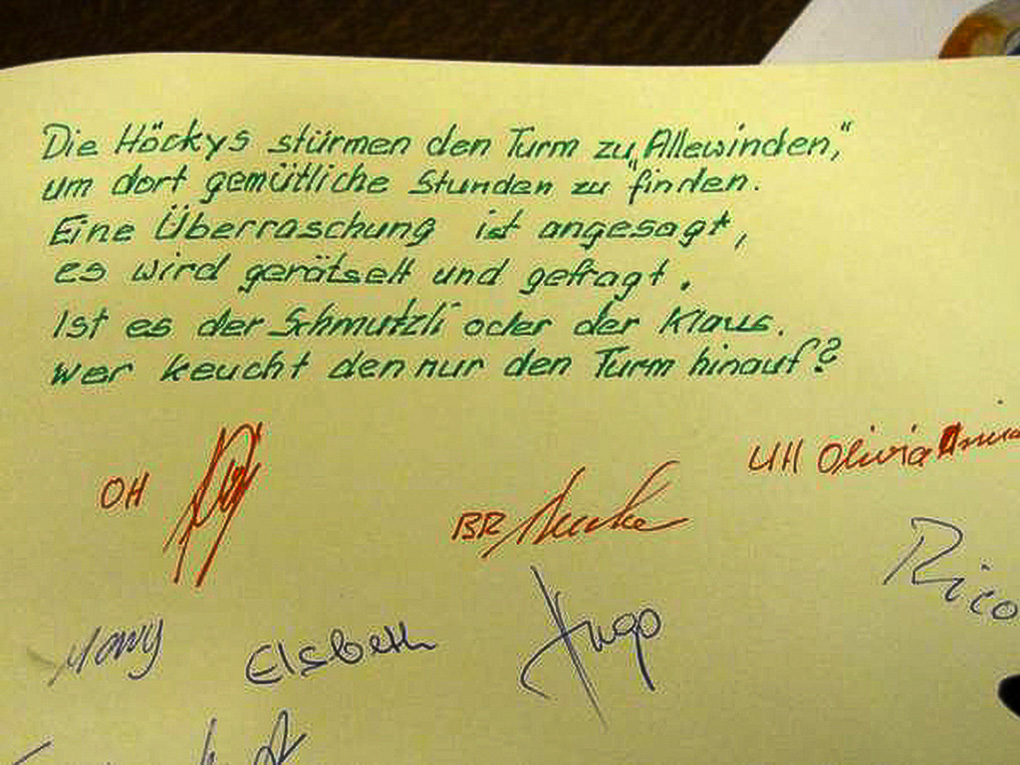 Die Höckys stürmen den Turm zu „Allewinden,“
um dort gemütliche Stunden zu finden.
Eine Überraschung ist angesagt,
es wird gerätselt und gefragt.
Ist es der Schmutzli oder der Klaus.
Wer keucht den nur den Turm hinauf?
UH Olivia
OH
BR
Rico
Elsbeth Hugo